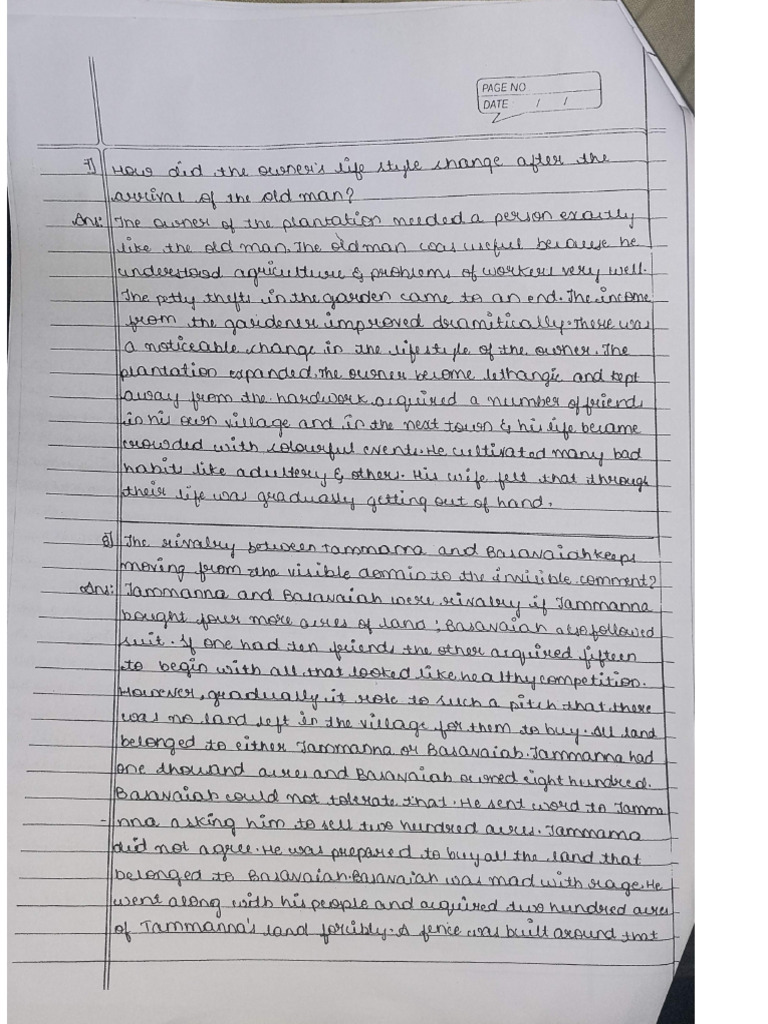 PAGE NO
DATE / /
7) How did the owner's life style change after the
arrival of the old man?
Ans: The owner of the plantation needed a person exactly
like the old man. The old man was useful because he
understood agriculture & problems of workers very well.
The petty thefts in the garden came to an end. The income
from the gardener improved dramitically. There was
a noticeable change in the lifestyle of the owner. The
plantation expanded. The owner become lethangic and kept
away from the hardwork, acquired a number of friends
in his own village and in the next town & his life became
crowded with colourful events. He cultivated many bad
habits like adultery & others. His wife felt that through
their life was gradually getting out of hand.
8) The rivalry between Tammanna and Basavaiah keeps
moving from the visible domin to the invisible. comment?
Ans: Tammanna and Basavaiah were rivalry if Tammanna
bought four more acres of land; Basavaiah also followed
suit. If one had ten friends the other acquired fifteen
to begin with all that looked like healthy competition.
However, gradually it role to such a pitch that there
was no land left in the village for them to buy. All land
belonged to either Tammanna or Basavaiah. Tammanna had
one thousand acres and Basavaiah owned eight hundred.
Basavaiah could not tolerate that. He sent word to Tamma
-nna asking him to sell two hundred acres. Tammanna
did not agree. He was prepared to buy all the land that
belonged to Basavaiah. Basavaiah was mad with rage. He
went along with his people and acquired two hundred acres
of Tammanna's land forcibly. A fence was built around that